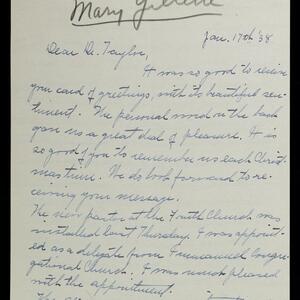 Mary Gillette
Jan. 17th '38
Dear Dr. Taylor,
It was so good to receive
your card of greetings, with its beautiful sen-
timent. The personal word on the back
gave us a great deal of pleasure. It is
so good of you to remember us each Christ-
mas time. We do look forward to re-
ceiving your message.
The new pastor at the Fourth Church was
installed last Thursday. I was appoint-
ed as a delegate from Immanuel Congre-
gational Church. I was much pleased
with the appointment.